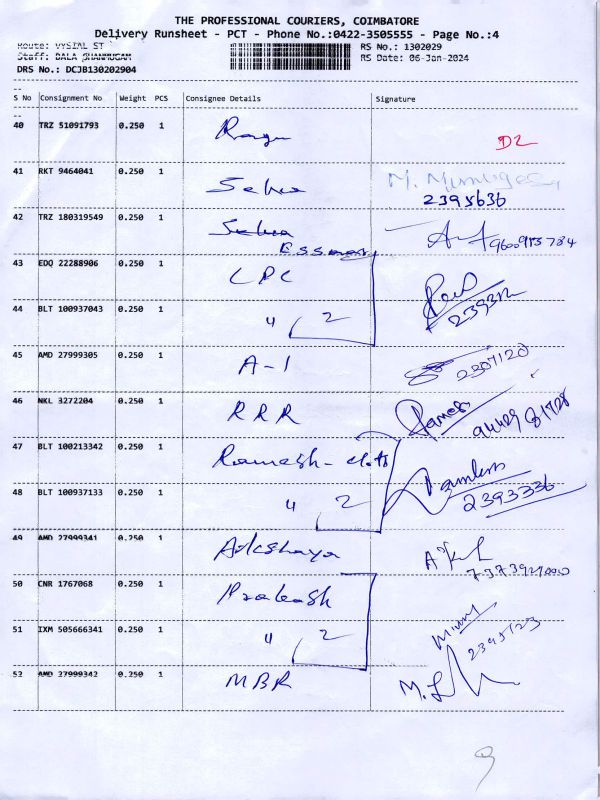 THE PROFESSIONAL COURIERS, COIMBATORE
Delivery Runsheet - PCT - Phone No.:0422-3505555 - Page No.:4
Route: VYSIAL ST
RS No.: 1302029
Staff: BALA SHANMUGAM
RS Date: 06-Jan-2024
DRS No.: DCJB130202904
S No Consignment No Weight PCS Consignee Details Signature
40 TRZ 51091793 0.250 1 Ragu D2
41 RKT 9464041 0.250 1 Selva M. Murugesa
2395636
42 TRZ 180319549 0.250 1 Selva
Essmar 9600975784
43 EDQ 22288906 0.250 1 LPC
44 BLT 100937043 0.250 1 " 2
45 AMD 27999305 0.250 1 A-1 2307120
46 NKL 3272204 0.250 1 RRR Ramesh
94429 81728
47 BLT 100213342 0.250 1 Ramesh-
48 BLT 100937133 0.250 1 " 2 2393336
49 AMD 27999341 0.250 1 Akshaya
50 CNR 1767068 0.250 1 Prakash
51 IXM 505666341 0.250 1 " 2 2395123
52 AMD 27999342 0.250 1 MBR
9